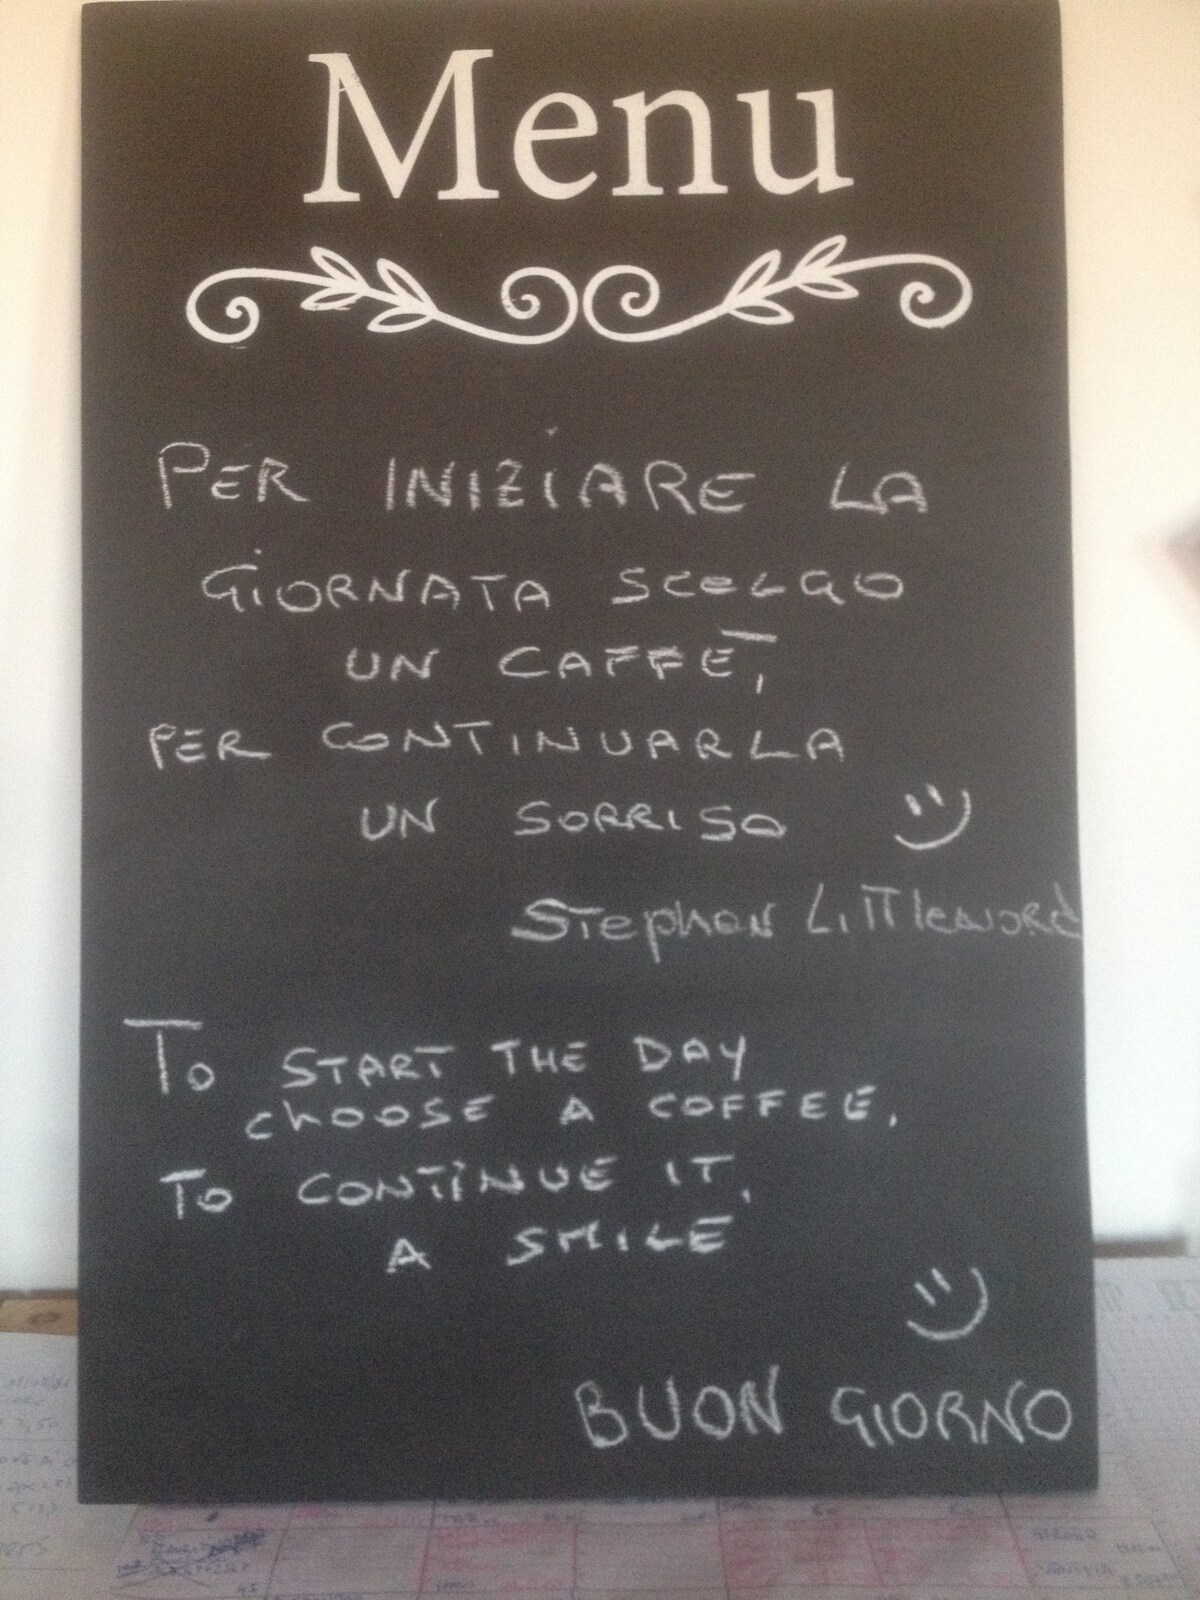 Menu
PER INIZIARE LA
GIORNATA SCELGO
UN CAFFÈ,
PER CONTINUARLA
UN SORRISO
Stephen Littleword
TO START THE DAY
CHOOSE A COFFEE,
TO CONTINUE IT,
A SMILE
BUON GIORNO